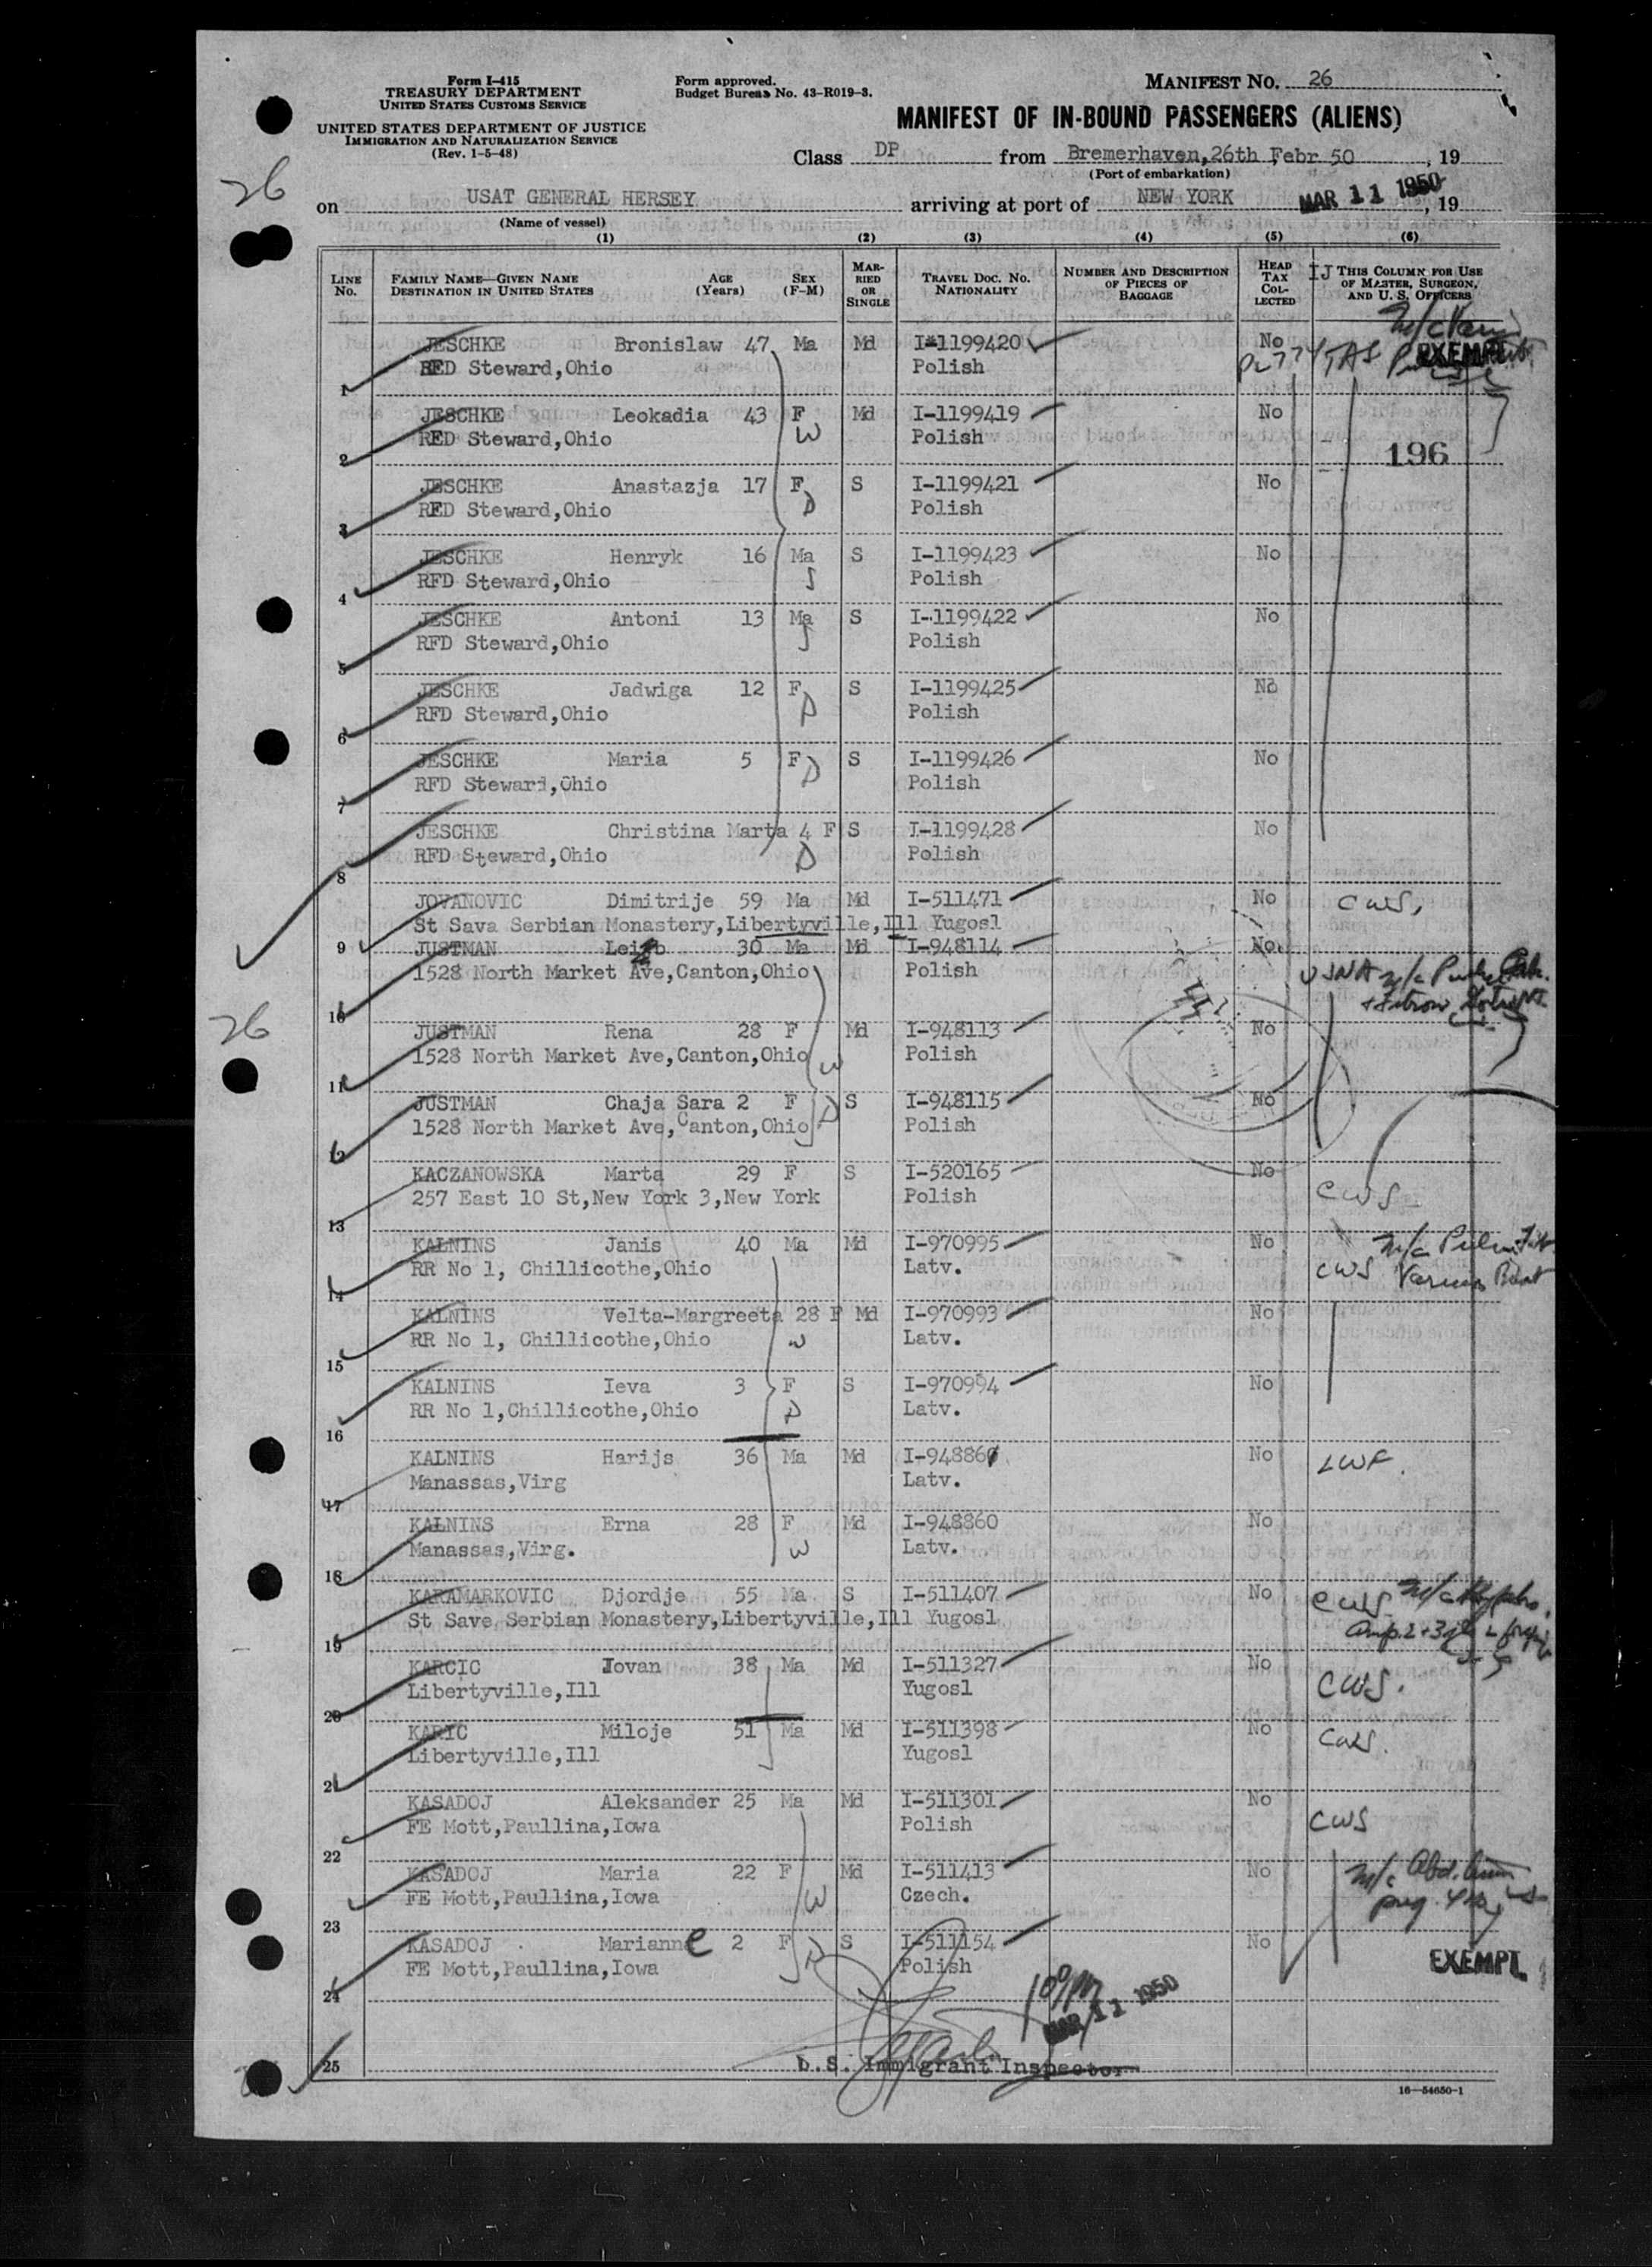 Form I-415
TREASURY DEPARTMENT
UNITED STATES CUSTOMS SERVICE
UNITED STATES DEPARTMENT OF JUSTICE
IMMIGRATION AND NATURALIZATION SERVICE
(Rev. 1-5-48)
Form approved.
Budget Bureau No. 43-R019-3.
MANIFEST NO. 26
MANIFEST OF IN-BOUND PASSENGERS (ALIENS)
Class DP from Bremerhaven,26th Febr 50, 19
(Port of embarkation)
26
on USAT GENERAL HERSEY arriving at port of NEW YORK MAR 11 1950, 19
(Name of vessel)
(1) (2) (3) (4) (5) (6)
LINE No. FAMILY NAME—GIVEN NAME DESTINATION IN UNITED STATES AGE (Years) SEX (F-M) MARRIED OR SINGLE TRAVEL DOC. NO. NATIONALITY NUMBER AND DESCRIPTION OF PIECES OF BAGGAGE HEAD TAX COLLECTED IJ THIS COLUMN FOR USE OF MASTER, SURGEON, AND U. S. OFFICERS
JESCHKE Bronislaw 47 Ma Md I-1199420 No EXEMPT
1 RFD Steward,Ohio Polish
JESCHKE Leokadia 43 F Md I-1199419 No
2 RFD Steward,Ohio W Polish 196
JESCHKE Anastazja 17 F S I-1199421 No
3 RFD Steward,Ohio D Polish
JESCHKE Henryk 16 Ma S I-1199423 No
4 RFD Steward,Ohio S Polish
JESCHKE Antoni 13 Ma S I-1199422 No
5 RFD Steward,Ohio S Polish
JESCHKE Jadwiga 12 F S I-1199425 No
6 RFD Steward,Ohio D Polish
JESCHKE Maria 5 F D S I-1199426 No
7 RFD Steward,Ohio Polish
JESCHKE Christina Marta 4 F S I-1199428 No
8 RFD Steward,Ohio D Polish
JOVANOVIC Dimitrije 59 Ma Md I-511471 No CWS,
9 St Sava Serbian Monastery,Libertyville,Ill Yugosl
JUSTMAN 30 Ma Md I-948114 No
10 1528 North Market Ave,Canton,Ohio Polish USNA m/c
26
JUSTMAN Rena 28 F Md I-948113 No
11 1528 North Market Ave,Canton,Ohio W Polish
JUSTMAN Chaja Sara 2 F D S I-948115 No
12 1528 North Market Ave,Canton,Ohio Polish
KACZANOWSKA Marta 29 F S I-520165 No
13 257 East 10 St,New York 3,New York Polish CWS
KALNINS Janis 40 Ma Md I-970995 No m/c
14 RR No 1, Chillicothe,Ohio Latv. CWS
KALNINS Velta-Margreeta 28 F Md I-970993 No
15 RR No 1, Chillicothe,Ohio W Latv.
KALNINS Ieva 3 F S I-970994 No
16 RR No 1,Chillicothe,Ohio D Latv.
KALNINS Harijs 36 Ma Md I-94886 No LWF.
17 Manassas,Virg Latv.
KALNINS Erna 28 F Md I-948860 No
18 Manassas,Virg. W Latv.
KARAMARKOVIC Djordje 55 Ma S I-511407 No CWS m/c
19 St Save Serbian Monastery,Libertyville,Ill Yugosl
KARCIC Jovan 38 Ma Md I-511327 No CWS.
20 Libertyville,Ill Yugosl
KARIC Miloje 51 Ma Md I-511398 No CWS.
21 Libertyville,Ill Yugosl
KASADOJ Aleksander 25 Ma Md I-511301 No CWS
22 FE Mott,Paullina,Iowa Polish
KASADOJ Maria 22 F Md I-511413 No m/c Abd.
23 FE Mott,Paullina,Iowa W Czech. preg.
KASADOJ Marianne 2 F D S I-511154 No EXEMPT
24 FE Mott,Paullina,Iowa Polish
MAR 11 1950
25 U.S. Immigrant Inspector
16—54650-1